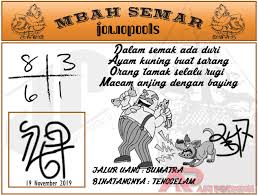 MBAH SEMAR
jonopools
Dalam semak ada duri
Ayam kuning buat sarang
Orang tamak selalu rugi
Macam anjing dengan baying
8 3
6 1
247
19 November 2019
JALUR UANG : SUMATRA
BINATANGNYA : TENGGELAM